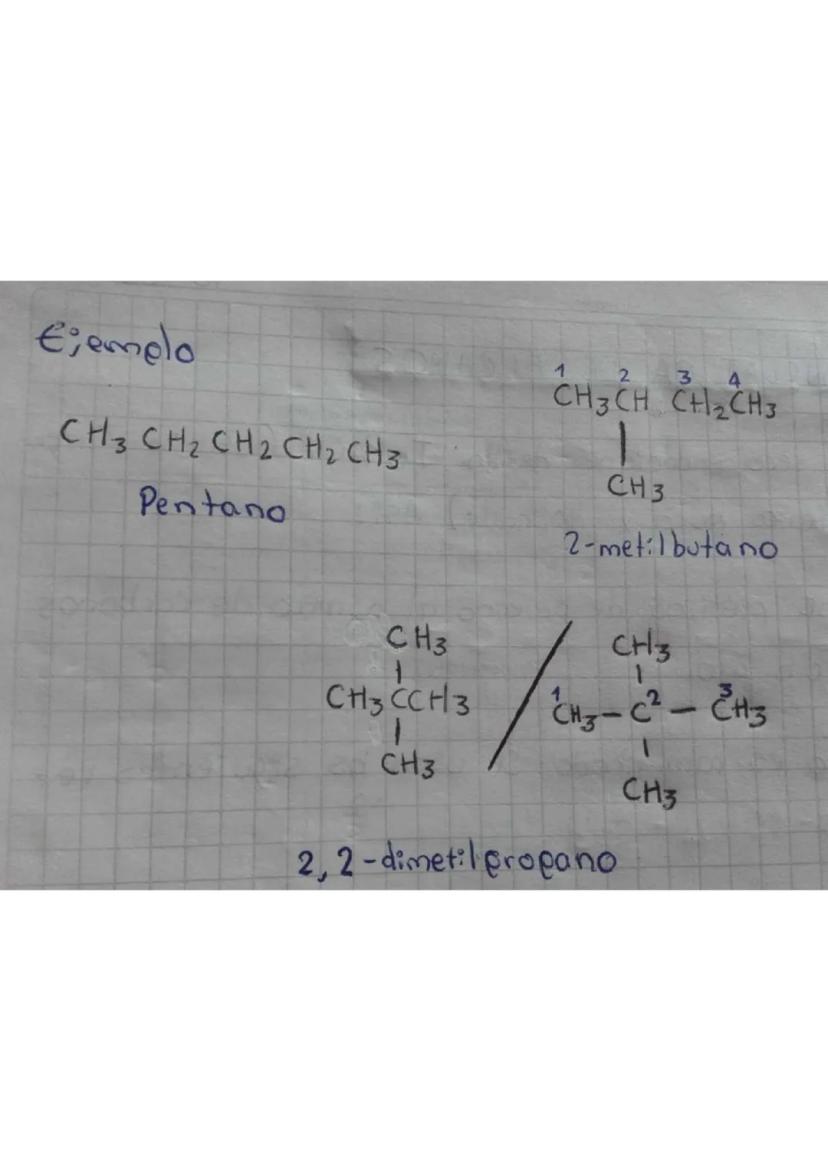 Ejemplo
CH3 CH2 CH2 CH2 CH3
Pentano
1 2 3 4
CH3 CH CH2 CH3
|
CH3
2-metilbutano
CH3
|
CH3 C CH3
|
CH3
/
CH3
|
1CH3 – C2 – 3CH3
|
CH3
2,2-dimetilpropano